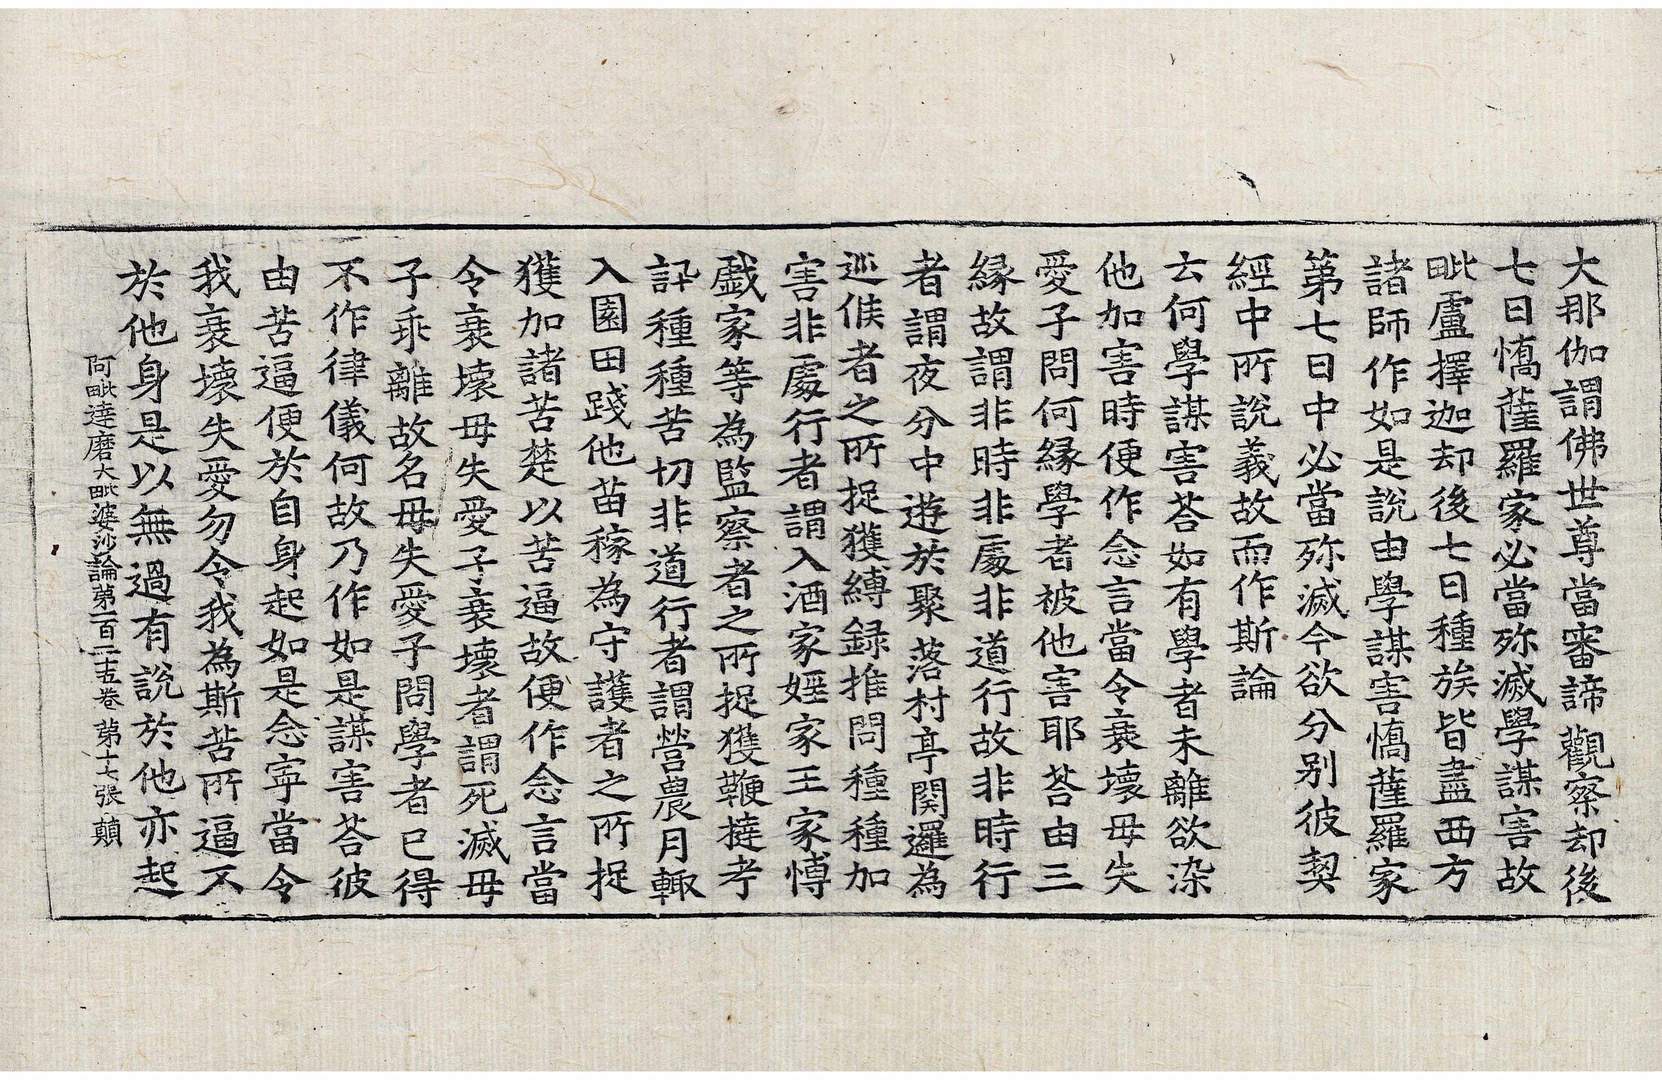 大那伽謂佛世尊當審諦觀察却後
七日憍薩羅家必當殄滅學謀害故
毗盧擇迦却後七日種族皆盡西方
諸師作如是說由學謀害憍薩羅家
第七日中必當殄滅今欲分別彼契
經中所說義故而作斯論
云何學謀害荅如有學者未離欲染
他加害時便作念言當令衰壞毋失
愛子問何緣學者被他害耶荅由三
緣故謂非時非處非道行故非時行
者謂夜分中遊於聚落村亭関邏為
巡候者之所捉獲縛録推問種種加
害非處行者謂入酒家婬家王家博
戲家等為監察者之所捉獲鞭撻考
訊種種苦切非道行者謂營農月輙
入園田踐他苗稼為守護者之所捉
獲加諸苦楚以苦逼故便作念言當
令衰壞毋失愛子衰壞者謂死滅毋
子乖離故名毋失愛子問學者已得
不作律儀何故乃作如是謀害荅彼
由苦逼便於自身起如是念寧當令
我衰壞失愛勿令我為斯苦所逼不
於他身是以無過有說於他亦起
阿毗達磨大毗婆沙論第一百二十五卷 第十七張 顛